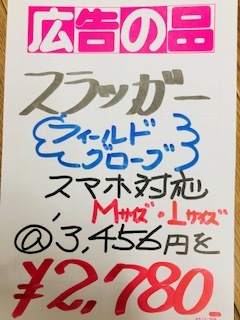 広告の品
スラッガー
フィールド
グローブ
スマホ対応
Mサイズ・Lサイズ
@3,456円を
¥2,780